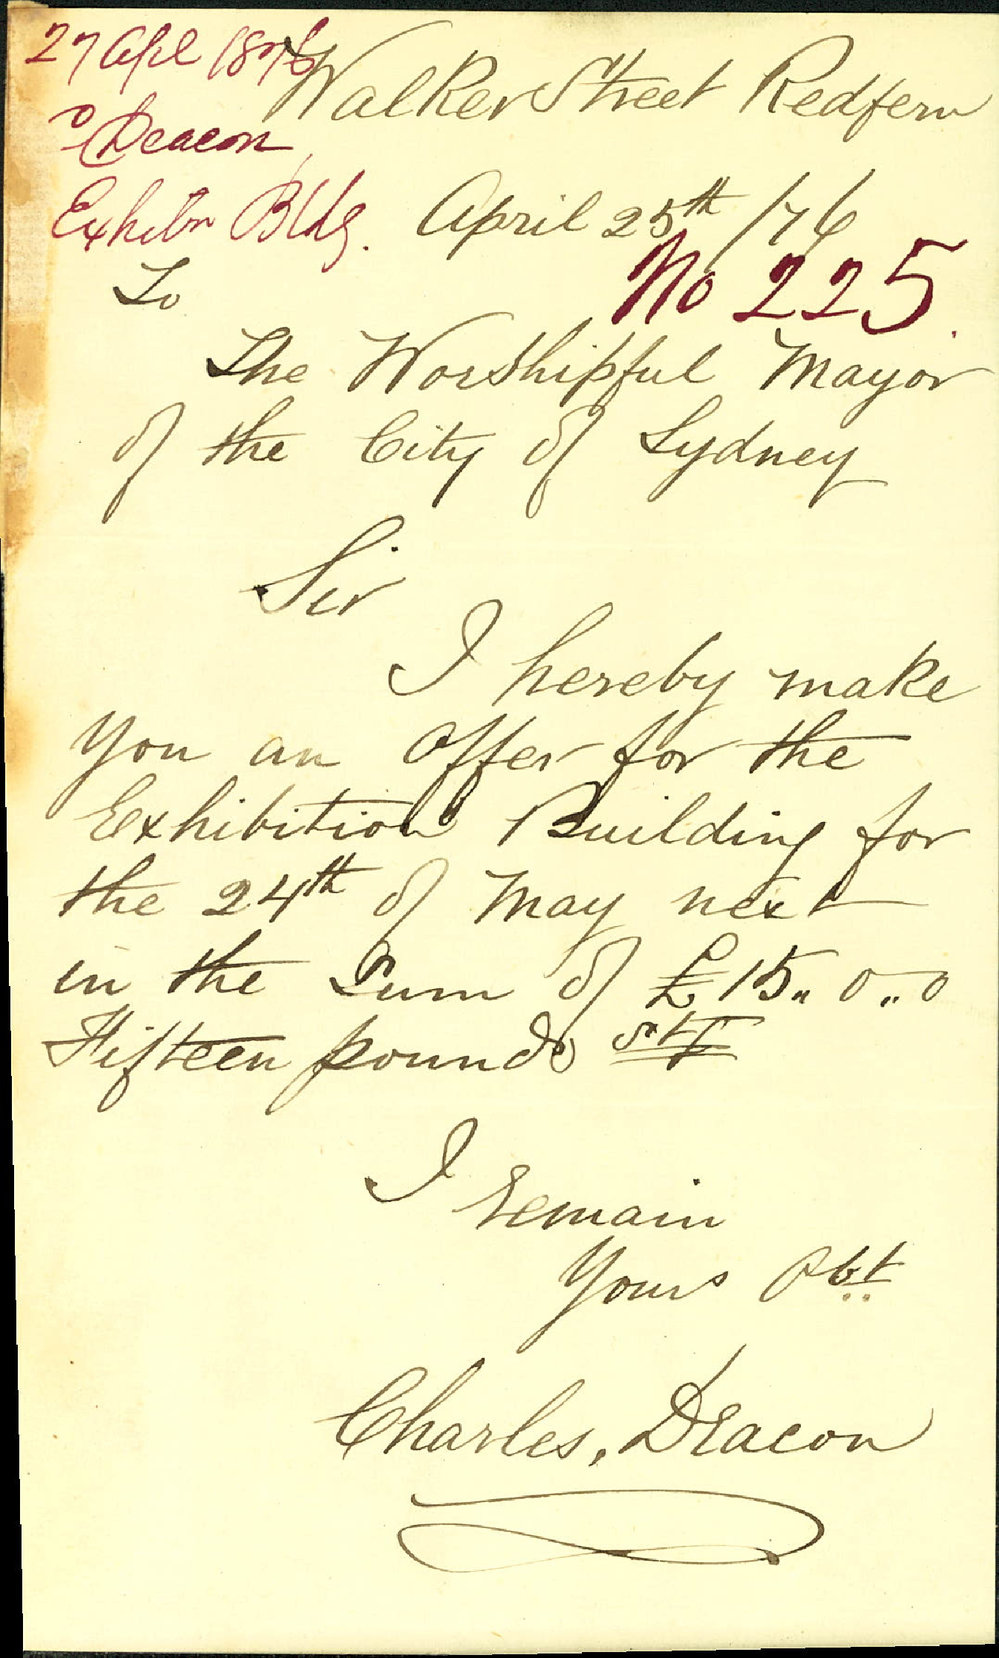 27 Apl 1876
C Deacon
Exhibn Bldg.
Walker Street Redfern
April 25th /76
No 225.
To
The Worshipful Mayor
of the City of Sydney
Sir
I hereby make
you an Offer for the
Exhibition Building for
the 24th of May next
in the Sum of £15.. 0.. 0
Fifteen pounds
I remain
Yours Obt
Charles, Deacon